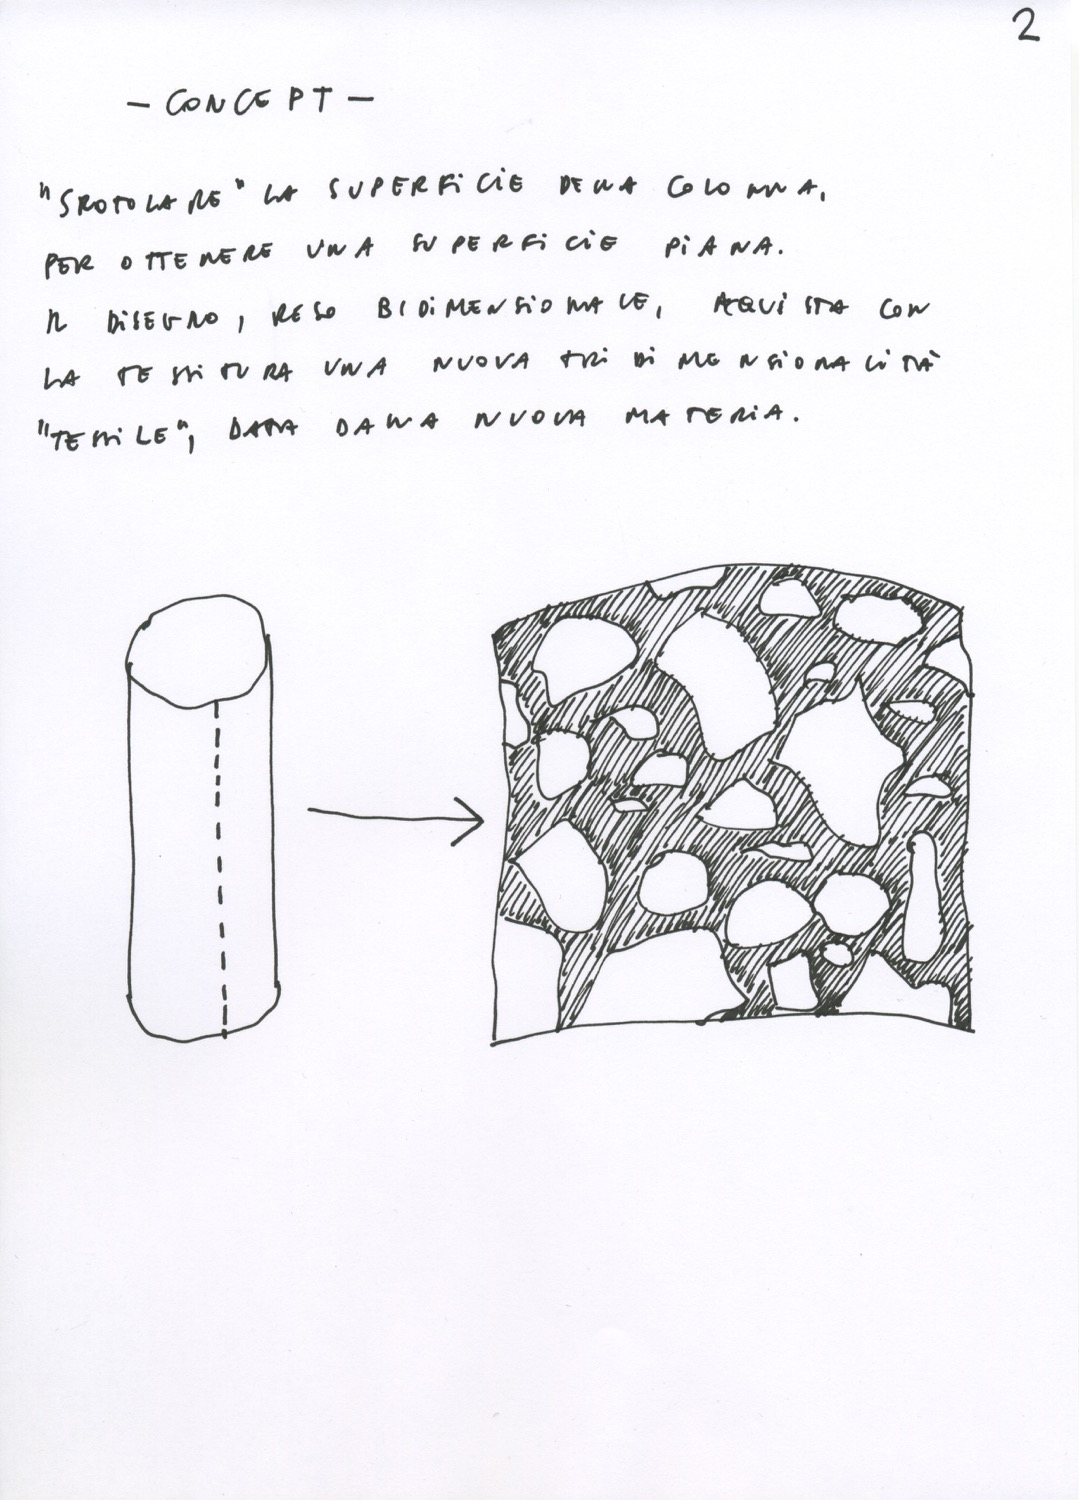 2
— CONCEPT —
"SROTOLARE" LA SUPERFICIE DELLA COLONNA,
PER OTTENERE UNA SUPERFICIE PIANA.
IL DISEGNO, RESO BIDIMENSIONALE, AQUISTA CON
LA TESSITURA UNA NUOVA TRIDIMENSIONALITÀ
"TESSILE", DATA DALLA NUOVA MATERIA.